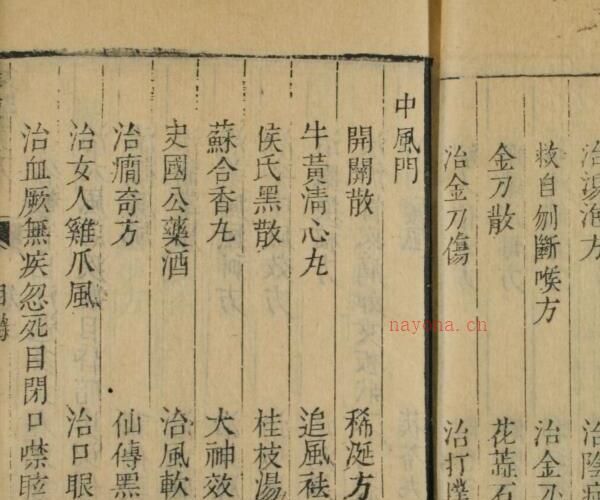 治湯泡方 治陰
救自刎斷喉方 治金刀
金刀散 花蕊石
治金刀傷 治打撲
中風門
開關散 稀涎方
牛黃清心丸 追風祛
侯氏黑散 桂枝湯
蘇合香丸 大神效
史國公藥酒 治風軟
治癇奇方 仙傳黑
治女人雞爪風 治口眼
治血厥無疾忽死目閉口噤眩
nayona.cn